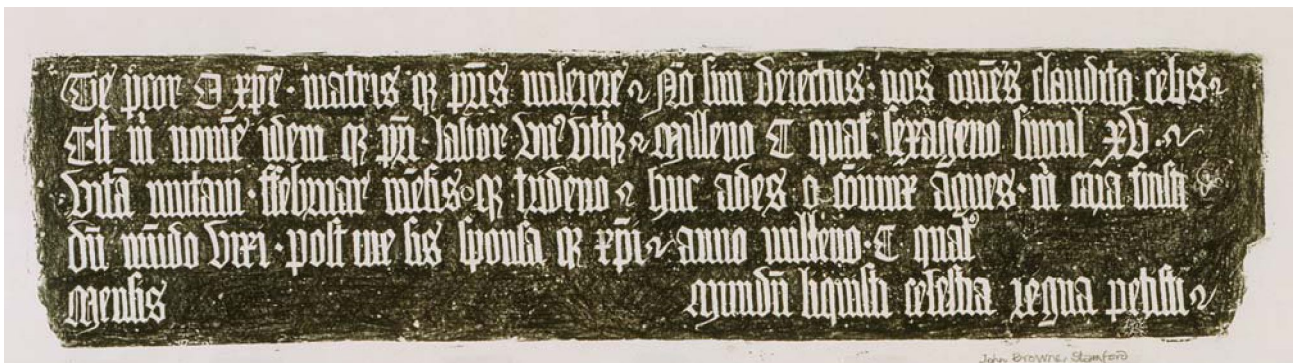 Te p̄cor O xp̄e · matris qꝫ pr̄is miserere Nō sim deiectus · nos om̄es claudito celis
Est m̄ nomē idem qꝫ pr̄i · labor vnꝰ vtriꝰqꝫ Milleno C quat͛ sexageno simul xv ·
Vitā mutavi · ffebruar͛ mēsis · qꝫ trideno huc ades o cōiunx āgnes · m̄ cara fuisti
dū mūdo vixi · post me sis sponsa qꝫ xp̄i anno milleno · C quat͛
Mensis mundū liquisti celestia regna petisti
John Browne, Stamford